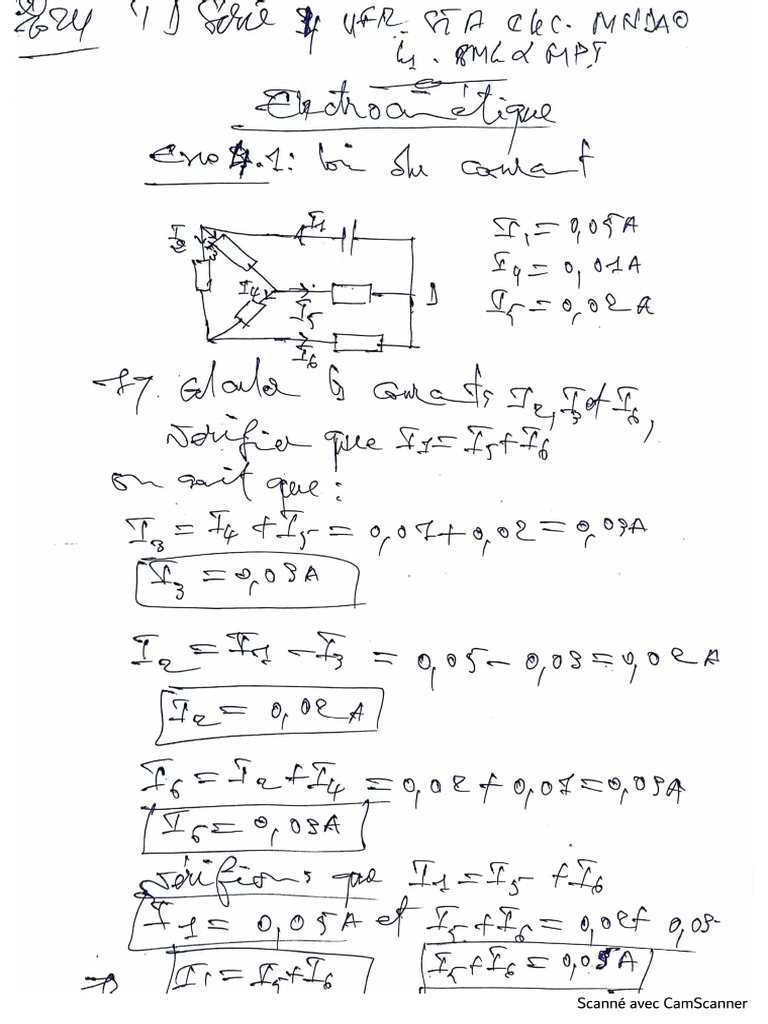 2024 TD Série 4 UFR. STA Elec. MNDAO
L1. BMC & MPI
Electrocinétique
Exo 4.1: loi du courant
I1
I2
I3
I1 = 0,05A
I4 = 0,01A
I4
I5 = 0,02A
I5
I6
1/. Calculer les courants I2, I3 et I6,
Vérifier que I1 = I5 + I6
on sait que :
I3 = I4 + I5 = 0,01 + 0,02 = 0,03A
I3 = 0,03A
I2 = I1 - I3 = 0,05 - 0,03 = 0,02A
I2 = 0,02A
I6 = I2 + I4 = 0,02 + 0,01 = 0,03A
I6 = 0,03A
Vérifions que I1 = I5 + I6
I1 = 0,05A et I5 + I6 = 0,02 + 0,03
⇒ I1 = I5 + I6 I5 + I6 = 0,05A
Scanné avec CamScanner